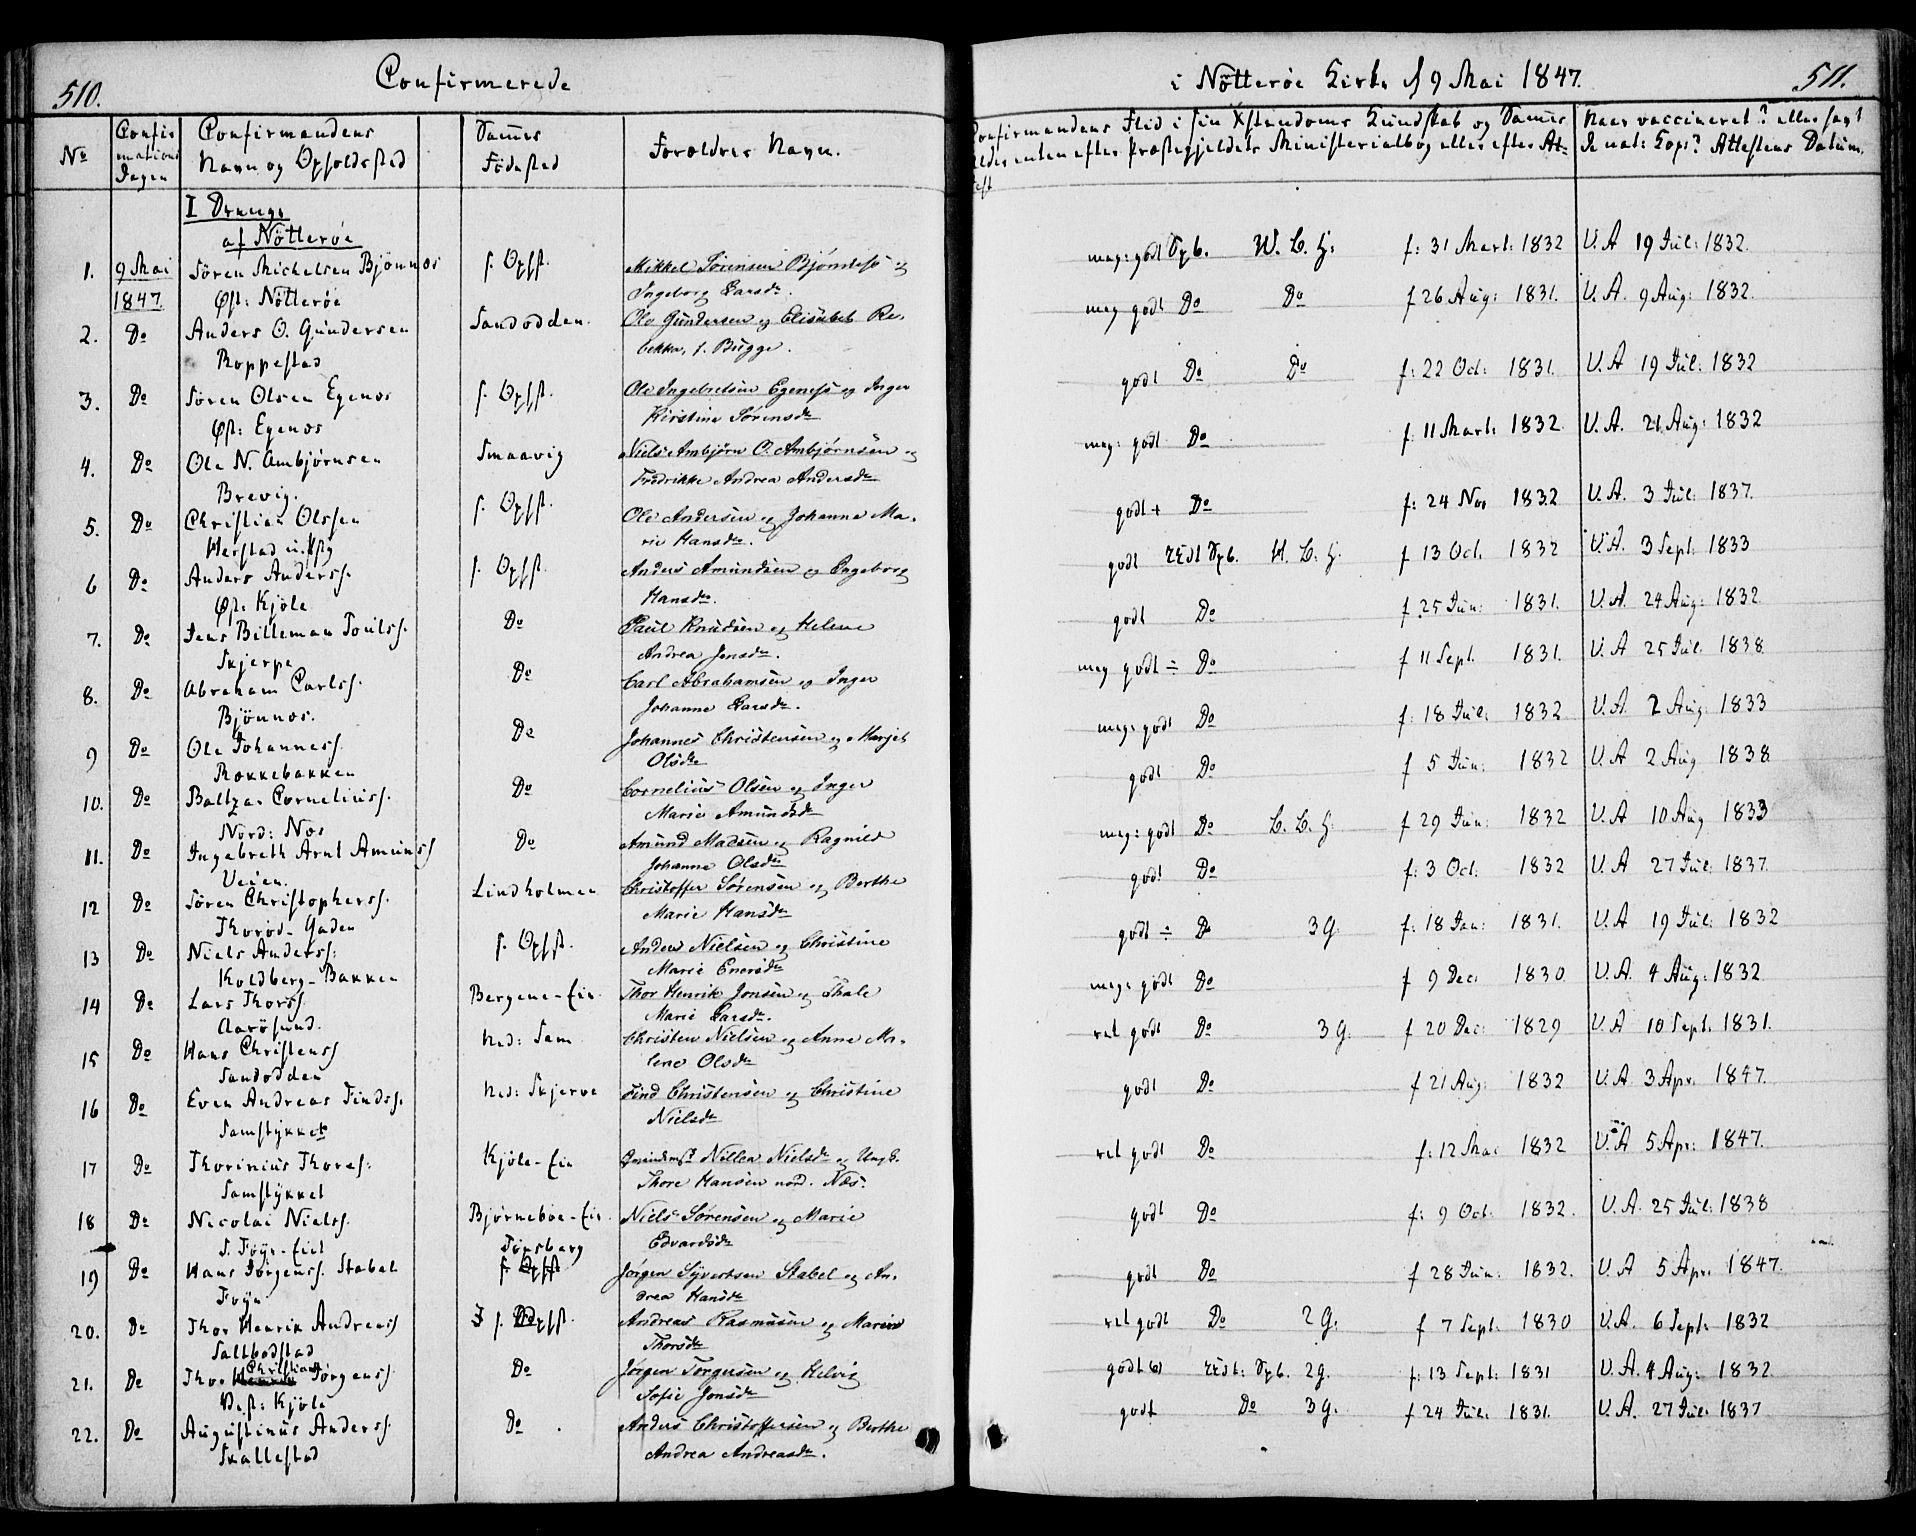 510.
Confirmerede
i Nötteröe Kirke d 9 Mai 1847.
511.
No
Confirmations Dagen
Confirmandens Navn og Opholdsted
Sammes Födested
Foroldres Navn.
Confirmandens Flid i sin Xstendoms Kundskab og Sammes
Alder enten efter Præstegjeldets Ministerialbog eller efter Attest
Naar vaccineret? eller havt
de nat: Kop? Attestens Datum.
I Drenge
af Nötteröe
1. 9 Mai 1847. Sören Michelsen Bjönnes Øst: Nötteröe s. Opst. Mikkel Sörensen Bjönnes og Ingeborg Larsdr. meg: godt Opb. W. L. H. f: 31 Mart: 1832 V. A 19 Jul: 1832.
2. Do Anders O. Gundersen Roppestad Sandodden. Ole Gundersen og Elisabet Rebekka, f. Bugge. meg godt Do Do f 26 Aug: 1831. V. A. 9 Aug: 1832.
3. Do Sören Olsen Egenes Øst: Egenes s. Opst. Ole Ingebretsen Egenes og Inger Kirstine Sörensdr godt Do Do f: 22 Oct: 1831. V. A 19 Jul: 1832
4. Do Ole N. Ambjörnsen Brevig. Smaavig Niels Ambjörn O. Ambjörnsen og Fredrikke Andrea Andersdr meg: godt Do f. 11 Mart: 1832. V. A. 21 Aug: 1832
5. Do Christian Olssen Herstad s. Opst. Ole Andersen og Johanna Marie Hansdr. godt + Do f: 24 Nov 1832 V. A. 3 Jul: 1837.
6 Do Anders Anderss. Øst: Kjöle s. Opst. Anders Amundsen og Ingeborg Hansdr. godt Opb. H. L. H. f 13 Oct. 1832 V. A. 3 Sept: 1833
7. Do Jens Billeman Poulss. Skjerpe Do Paul Knudsen og Helene Andrea Jensdr. godt Do f 25 Jun: 1831. V. A. 24 Aug: 1832
8. Do Abraham Carlss. Bjönnes. Do Carl Abrahamsen og Inger Johanne Larsdr. meg godt ÷ Do f 11 Sept. 1831. V. A 25 Jul. 1838.
9 Do Ole Johanness. Rokkebakken Do Johannes Christensen og Marjet Olsdr meg: godt Do f: 18 Jul: 1832 V. A. 2 Aug: 1833
10. Do Baltzar Corneliuss. Nord: Nes Do Cornelius Olsen og Inger Marie Amundsdr godt Do f 5 Jun: 1832 V. A 2 Aug 1838.
11. Do Ingebreth Arnt Amunss Veien. Do Amund Madsen og Ragnild Johanne Olsdr meg: godt Do L. L. H. f 29 Jun: 1832 V. A 10 Aug 1833
12 Do Sören Christophers. Thoröd-Gaden Lindholmen Christoffer Sörensen og Berthe Marie Hansdr godt Do f: 3 Oct. 1832 V. A 27 Jul: 1837.
13 Do Niels Anderss: Koldberg-Bakken s. Opst. Anders Nielsen og Christine Marie Enersdr godt ÷ Do 3 G. f: 18 Jan: 1831. V. A 19 Jul: 1832
14 Do Lars Thorss. Aarösund. Bergene-Eie. Thor Henrik Jensen og Thale Marie Larsdr. meg: godt Do f 9 Dec: 1830 V. A. 4 Aug: 1832
15 Do Hans Christenss Sandodden Ned: Sem Christen Nielsen og Anne Malene Olsdr vel godt Do 3 G. f 20 Dec: 1829 V. A 10 Sept. 1831.
16 Do Even Andreas Findss. Samstykket Ned: Skjerve Find Christensen og Christine Nielsdr godt Do f 21 Aug: 1832 V. A 3 Apr. 1847.
17 Do Thorinius Thores: Samstykket Kjöle-Eie Nillea Nielsdr og Ungk. Thore Hansen nord. Næs. vel godt Do f: 12 Mai 1832 V. A 5 Apr: 1847.
18 Do Nicolai Nielss. S. Föyn-Eiet Björneböe-Eie. Niels Sörensen og Marie Edvardsdr godt Do f: 9 Oct. 1832. V. A. 25 Jul: 1838
19 Do Hans Jörgenss. Stabel Föyn Tönsberg s. Opst Jörgen Syvertsen Stabel og Andrea Hansdr godt Do f 28 Jun: 1832. V. A 5 Apr. 1847.
20. Do Thor Henrik Andreass Saltbodstad s. Opst. Andreas Rasmusen og Maren Thorsdr vel godt Do 2 G. f 7 Sept. 1830 V. A. 6 Sept: 1832
21. Do Thor Christian Jörgenss. Vest: Kjöle Do Jörgen Torgersen og Helvig Sofie Jensdr godt Opb. 2 G. f: 13 Sept: 1831 V. A. 4 Aug: 1832.
22. Do Augustinus Anderss. Skallestad Do Anders Christoffersen og Berthe Andrea Andreasdr. godt Do 3 G. f 24 Jul: 1831. V. A. 27 Jul: 1837